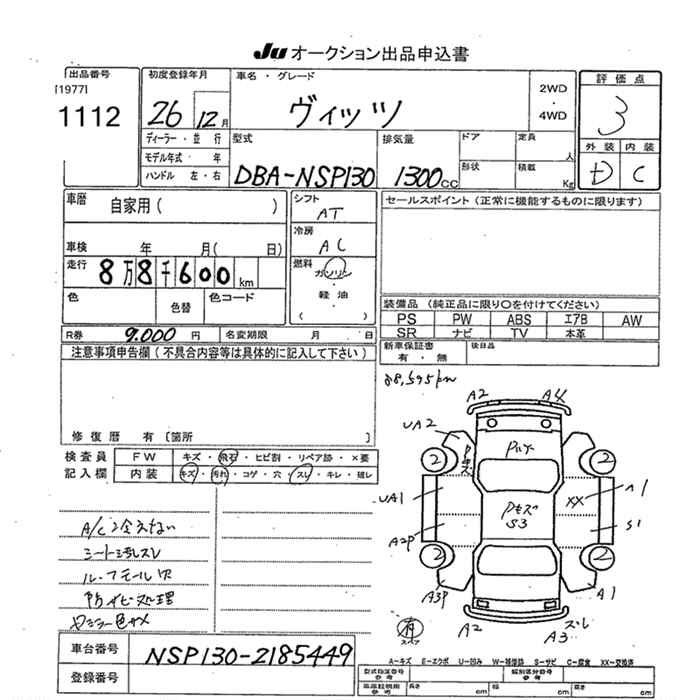 Ju オークション出品申込書
出品番号
[1977]
1112
初度登録年月
26 12月
車名・グレード
ヴィッツ
2WD
・
4WD
評価点
3
外装 内装
D C
ディーラー・並行
モデル年式・ 年
ハンドル 左・右
型式
DBA-NSP130
排気量
1300cc
ドア
形状
定員
人
積載
Kg
車暦
自家用( )
車検 年 月( 日)
走行
8万8千600km
色
色替
色コード
シフト
AT
冷房
AC
燃料
ガソリン
・
軽油
( )
セールスポイント(正常に機能するものに限ります)
装備品(純正品に限り○を付けてください)
PS PW ABS エアB AW
SR ナビ TV 本革
新車保証書
有・無
後日品
R券 9,000円 名変期限 月 日
注意事項申告欄(不具合内容等は具体的に記入して下さい)
修復暦 有〔箇所 〕
検査員
記入欄
FW キズ・飛石・ヒビ割・リペア跡・×要
内装 キズ・汚れ・コゲ・穴・スレ・キレ・破レ
88,595km
A2 A4
UA2
Pキズ
2 2
UA1
XX
A1
Pキズ
S3
A2P
S1
2 2
A3P
A1
A2
A3
スレ
有
スペア
A/C冷えない
シート汚れスレ
ルーフモール穴
防サビ処理
車台番号
NSP130-2185449
登録番号
A-キズ E-エクボ U-凹み W-補修跡 S-サビ C-腐食 XX-交換済
型式指定番号
参考
類別区分番号
参考
車庫証明用
参考
長さ cm
幅 cm
高さ cm